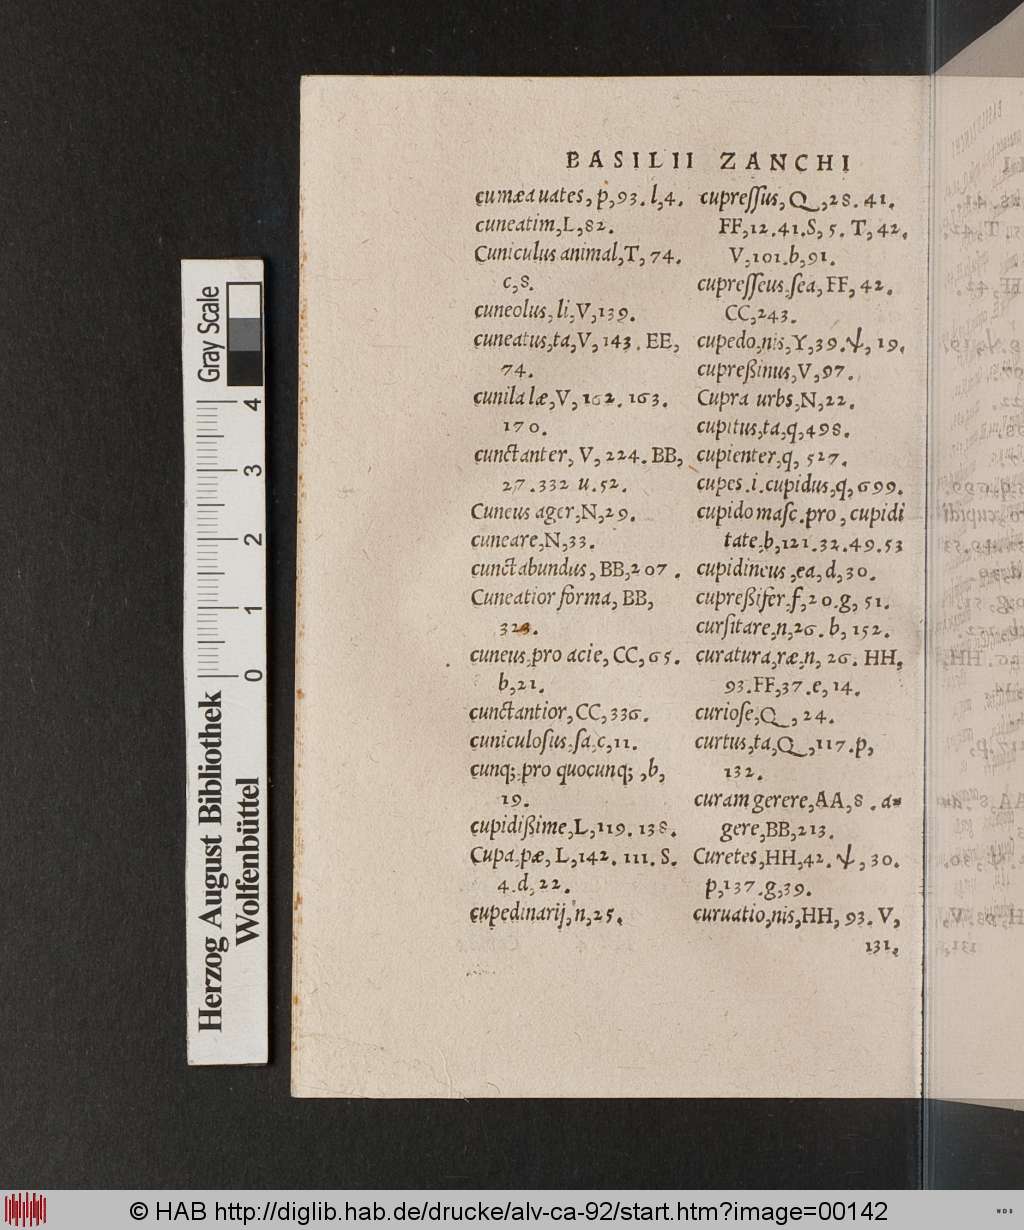 BASILII ZANCHI
cumæa uates, p,93. l,4.
cuneatim,L,82.
Cuniculus animal,T, 74.
c,8.
cuneolus, li,V,139.
cuneatus,ta,V, 143. EE,
74.
cunila læ,V, 162. 163.
170.
cunctanter, V, 224. BB,
27.332 u.52.
Cuneus ager,N,29.
cuneare,N,33.
cunctabundus, BB,207.
Cuneatior forma, BB,
323.
cuneus,pro acie, CC,65.
b,21.
cunctantior,CC,336.
cuniculoſus,ſa,c,11.
cunq;,pro quocunq; ,b,
19.
cupidißime,L,119. 138.
Cupa,pæ, L,142. 111. S.
4.d,22.
cupedinarij,n,25.
cupreſſus, Q,28. 41.
FF,12.41.S, 5. T, 42.
V,101.b,91.
cupreſſeus,ſea, FF, 42.
CC,243.
cupedo,nis,Y,39.ψ, 19.
cupreßinus,V,97.
Cupra urbs,N,22.
cupitus,ta,q,498.
cupienter,q, 527.
cupes.i.cupidus,q,699.
cupido maſc.pro, cupidi
tate,b,121.32.49.53
cupidineus,ea, d,30.
cupreßifer,f,20.g, 51.
curſitare,n,26.b, 152.
curatura,ræ,n, 26. HH,
93.FF,37.e, 14.
curioſe,Q, 24.
curtus,ta,Q,117.p,
132.
curam gerere,AA,8. a=
gere,BB,213.
Curetes,HH,42. ψ, 30.
p,137.g,39.
curuatio,nis,HH, 93. V,
131.
Gray Scale
0 1 2 3 4
Herzog August Bibliothek
Wolfenbüttel
© HAB http://diglib.hab.de/drucke/alv-ca-92/start.htm?image=00142